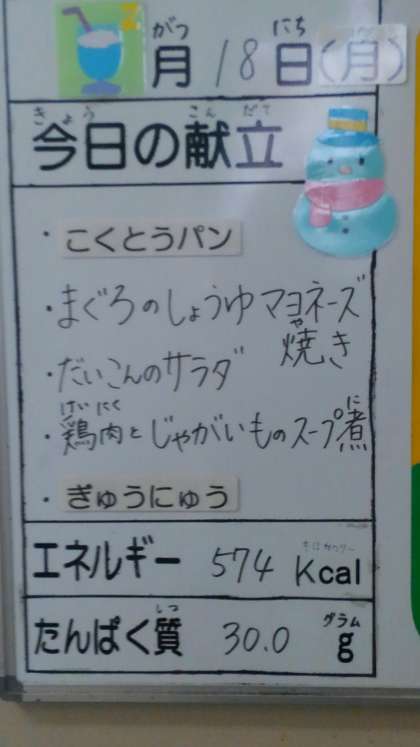 がつ にち
月 18日(月)
きょう こんだて
今日の献立
・こくとうパン
・まぐろのしょうゆマヨネーズ
や
焼き
・だいこんのサラダ
けいにく に
・鶏肉とじゃがいものスープ煮
・ぎゅうにゅう
エネルギー 574 Kcal
しつ グラム
たんぱく質 30.0 g